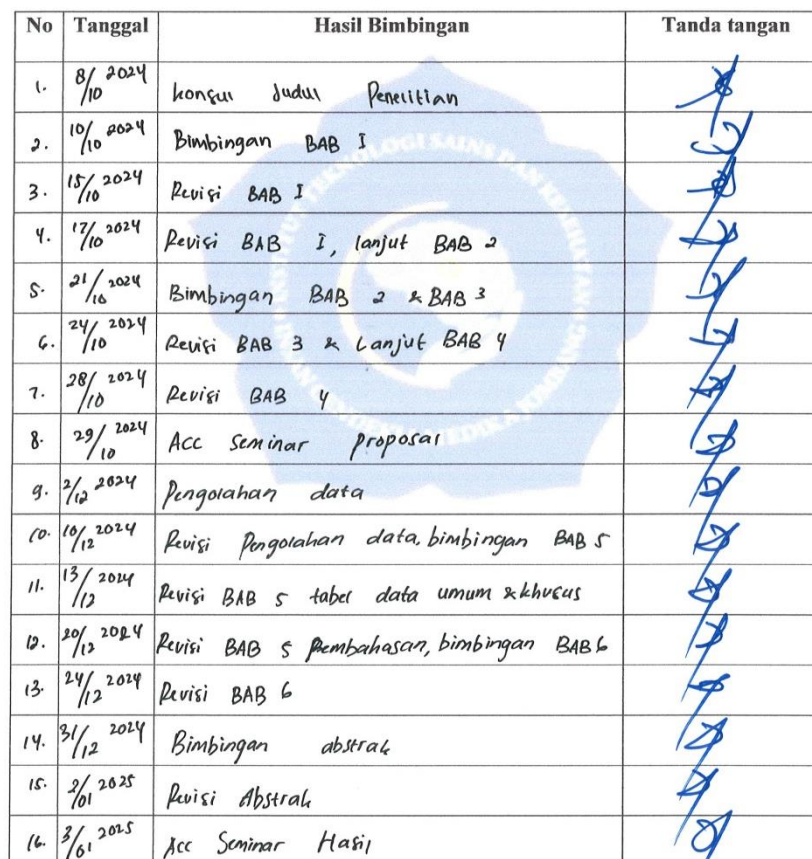 No Tanggal Hasil Bimbingan Tanda tangan
1. 8/10 2024 konsul Judul Penelitian
2. 10/10 2024 Bimbingan BAB I
3. 15/10 2024 Revisi BAB I
4. 17/10 2024 Revisi BAB I, lanjut BAB 2
5. 21/10 2024 Bimbingan BAB 2 & BAB 3
6. 24/10 2024 Revisi BAB 3 & Lanjut BAB 4
7. 28/10 2024 Revisi BAB 4
8. 29/10 2024 Acc Seminar proposal
9. 2/12 2024 Pengolahan data
10. 10/12 2024 Revisi Pengolahan data, bimbingan BAB 5
11. 13/12 2024 Revisi BAB 5 tabel data umum & khusus
12. 20/12 2024 Revisi BAB 5 Pembahasan, bimbingan BAB 6
13. 24/12 2024 Revisi BAB 6
14. 31/12 2024 Bimbingan abstrak
15. 2/01 2025 Revisi Abstrak
16. 3/01 2025 Acc Seminar Hasil
INSTITUT TEKNOLOGI SAINS DAN KESEHATAN
INSAN CENDEKIA MEDIKA JOMBANG